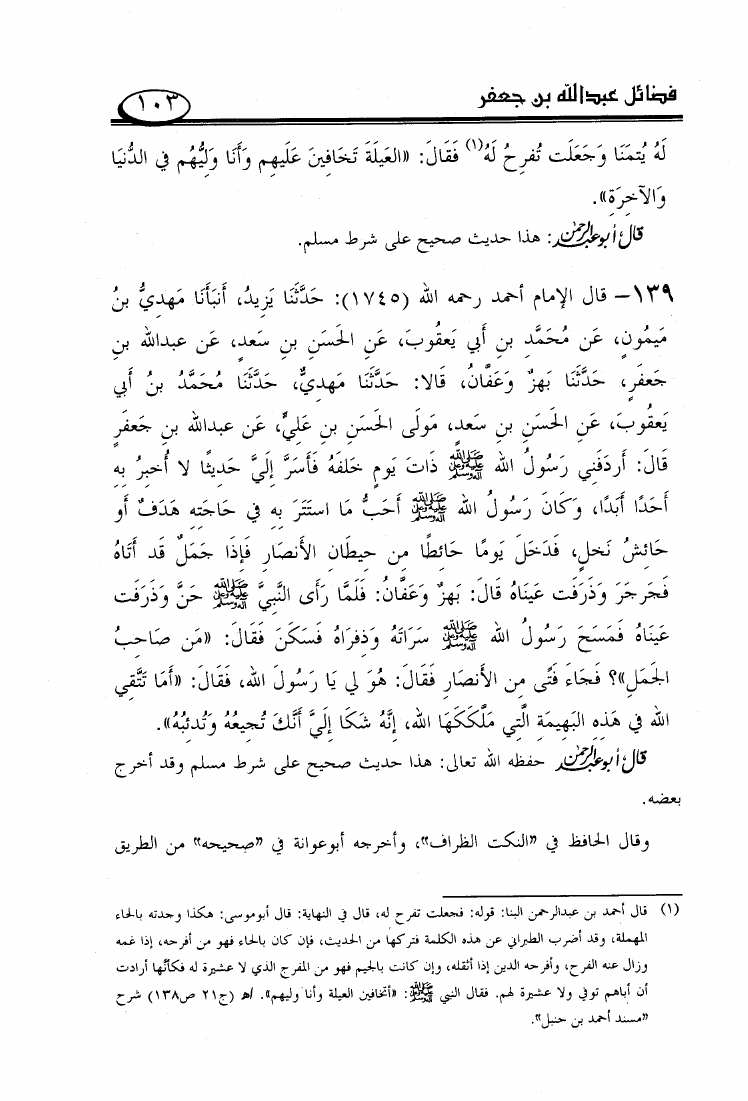 فضائل عبدالله بن جعفر
١٠٣
لَهُ يُتمَنَا وَجَعَلَت تُفرِحُ لَهُ(١) فَقَالَ: «العَيلَةَ تَخَافِينَ عَلَيهِم وَأَنَا وَلِيُّهُم فِي الدُّنيَا
وَالآخِرَةِ».
قال أبو عبدالرحمن: هذا حديث صحيح على شرط مسلم.
١٣٩- قال الإمام أحمد رحمه الله (١٧٤٥): حَدَّثَنَا يَزِيدُ، أَنبَأَنَا مَهدِيُّ بنُ
مَيمُونٍ، عَن مُحَمَّدِ بنِ أَبِي يَعقُوبَ، عَنِ الحَسَنِ بنِ سَعدٍ، عَن عبدالله بنِ
جَعفَرٍ، حَدَّثَنَا بَهزٌ وَعَفَّانُ، قَالا: حَدَّثَنَا مَهدِيٌّ، حَدَّثَنَا مُحَمَّدُ بنُ أَبِي
يَعقُوبَ، عَنِ الحَسَنِ بنِ سَعدٍ، مَولَى الحَسَنِ بنِ عَلِيٍّ، عَن عبدالله بنِ جَعفَرٍ
قَالَ: أَردَفَنِي رَسُولُ الله ﷺ ذَاتَ يَومٍ خَلفَهُ فَأَسَرَّ إِلَيَّ حَدِيثًا لا أُخبِرُ بِهِ
أَحَدًا أَبَدًا، وَكَانَ رَسُولُ الله ﷺ أَحَبُّ مَا استَتَرَ بِهِ فِي حَاجَتِهِ هَدَفٌ أَو
حَائِشُ نَخلٍ، فَدَخَلَ يَومًا حَائِطًا مِن حِيطَانِ الأَنصَارِ فَإِذَا جَمَلٌ قَد أَتَاهُ
فَجَرجَرَ وَذَرَفَت عَينَاهُ قَالَ: بَهزٌ وَعَفَّانُ: فَلَمَّا رَأَى النَّبِيَّ ﷺ حَنَّ وَذَرَفَت
عَينَاهُ فَمَسَحَ رَسُولُ الله ﷺ سَرَاتَهُ وَذِفرَاهُ فَسَكَنَ فَقَالَ: «مَن صَاحِبُ
الجَمَلِ»؟ فَجَاءَ فَتًى مِن الأَنصَارِ فَقَالَ: هُوَ لِي يَا رَسُولَ الله، فَقَالَ: «أَمَا تَتَّقِي
الله فِي هَذِهِ البَهِيمَةِ الَّتِي مَلَّكَكَهَا الله، إِنَّهُ شَكَا إِلَيَّ أَنَّكَ تُجِيعُهُ وَتُدئِبُهُ».
قال أبو عبدالرحمن حفظه الله تعالى: هذا حديث صحيح على شرط مسلم وقد أخرج
بعضه.
وقال الحافظ في «النكت الظراف»، وأخرجه أبوعوانة في «صحيحه» من الطريق
(١) قال أحمد بن عبدالرحمن البنا: قوله: فجعلت تفرح له، قال في النهاية: قال أبوموسى: هكذا وجدته بالحاء
المهملة، وقد أضرب الطبراني عن هذه الكلمة فتركها من الحديث، فإن كان بالحاء فهو من أفرحه، إذا غمه
وزال عنه الفرح، وأفرحه الدين إذا أثقله، وإن كانت بالجيم فهو من المفرج الذي لا عشيرة له فكأنها أرادت
أن أباهم توفي ولا عشيرة لهم. فقال النبي ﷺ: «أتخافين العيلة وأنا وليهم». اهـ (ج٢١ ص١٣٨) شرح
«مسند أحمد بن حنبل».